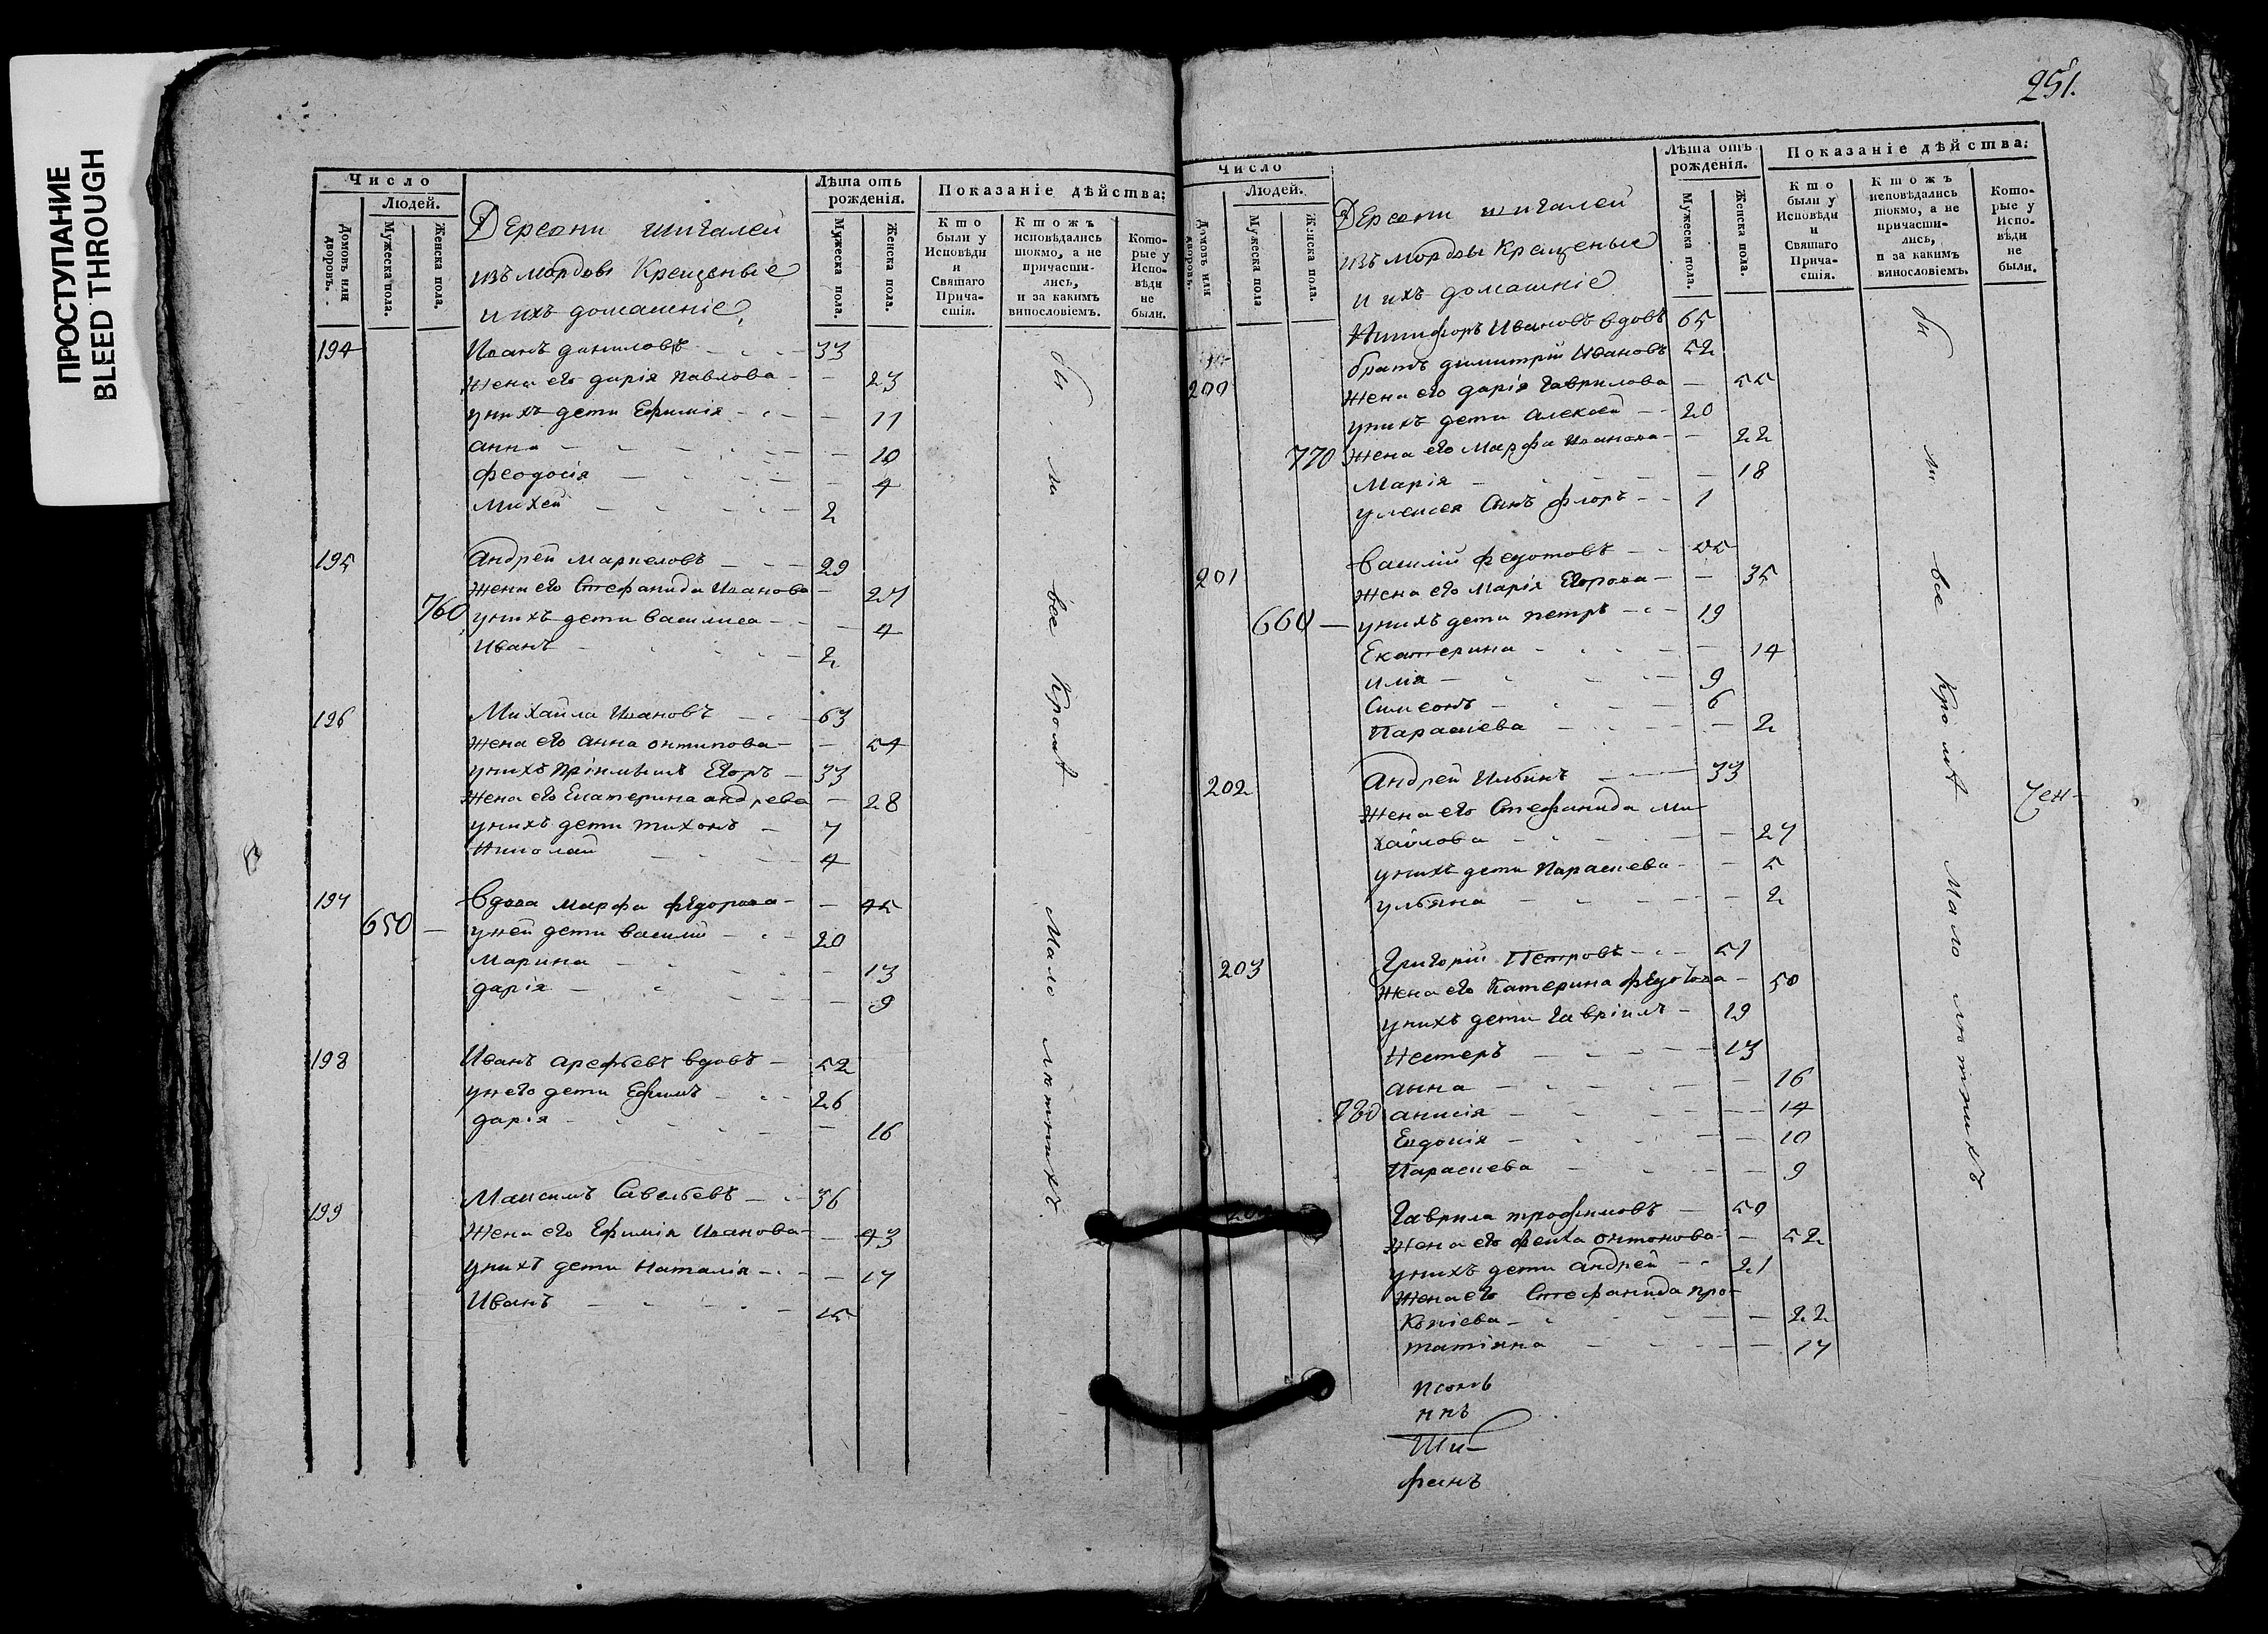 ПРОСТУПАНИЕ
BLEED THROUGH
Число
Людей.
Домовъ или дворовъ.
Мужеска пола.
Женска пола.
Деревни шигалеи
изъ мордовъ Крещеные
и ихъ домашніе
Лѣта отъ рожденія.
Мужеска пола.
Женска пола.
Показаніе дѣйства:
Кто были у Исповѣди и Святаго Прича-стія.
Ктожъ исповѣдались токмо, а не причасти-лись, и за какимъ винословіемъ.
Кото-рые у Испо-вѣди не были.
194 Иванъ даниловъ 33
жена его дарія павлова 23
у нихъ дети Ефимія 11
анна 10
феодосія 4
михей 2
195 Андрей маркеловъ 29
жена его Стефанида Иванова 27
760 у нихъ дети василиса 4
Иванъ 2
196 Михайла Ивановъ 63
жена его анна онтипова 54
у нихъ Егоръ 33
жена его Екатерина андрева 28
у нихъ дети тихонъ 7
Николай 4
197 вдова марфа федорова 45
650 у ней дети василий 20
марина 13
дарія 9
198 Иванъ арефьевъ вдовъ 52
у него дети Ефимъ 26
дарія 16
199 Максимъ Савельевъ 36
жена его Ефимія Иванова 43
у нихъ дети наталія 17
Иванъ 15
бы ли все Кромѣ мало лѣтнихъ
251.
Число
Людей.
Домовъ или дворовъ.
Мужеска пола
Женска пола.
Деревни шигалеи
изъ мордовъ Крещеные
и ихъ домашніе
Лѣта отъ рожденія.
Мужеска пола.
Женска пола.
Показаніе дѣйства:
Кто были у Исповѣди и Святаго Прича-стія.
Ктожъ исповѣдались токмо, а не причасти-лись, и за какимъ винословіемъ.
Кото-рые у Испо-вѣди не были.
Никифоръ Ивановъ вдовъ 65
братъ димитрій Ивановъ 52
200 жена его дарія Гаврилова 55
у нихъ дети алексей 20
770 жена его марфа Иванова 22
марія 18
у алексея Сынъ флоръ 1
201 василий федотовъ 55
жена его марія Егорова 35
660 у нихъ дети петръ 19
Екатерина 14
илія 9
Симеонъ 6
Параскева 2
202 Андрей Ильинъ 33
жена его Стефанида ми
хайлова 27
у нихъ дети Параскева 5
ульяна 2
203 Григорій Петровъ 51
жена его Катерина федотова 50
у нихъ дети Гавріилъ 19
нестеръ 13
анна 16
780 анисія 14
Евдокія 10
Параскева 9
204 Гаврила трофимовъ 50
жена его фекла онтонова 52
у нихъ дети андрей 21
жена его Стефанида про-
копіева 22
татіяна 17
бы ли все Кромѣ мало лѣтнихъ
Ши-
фанъ